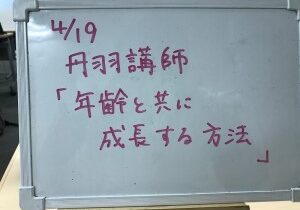 4/19
丹羽講師
「年齢と共に
成長する方法
」